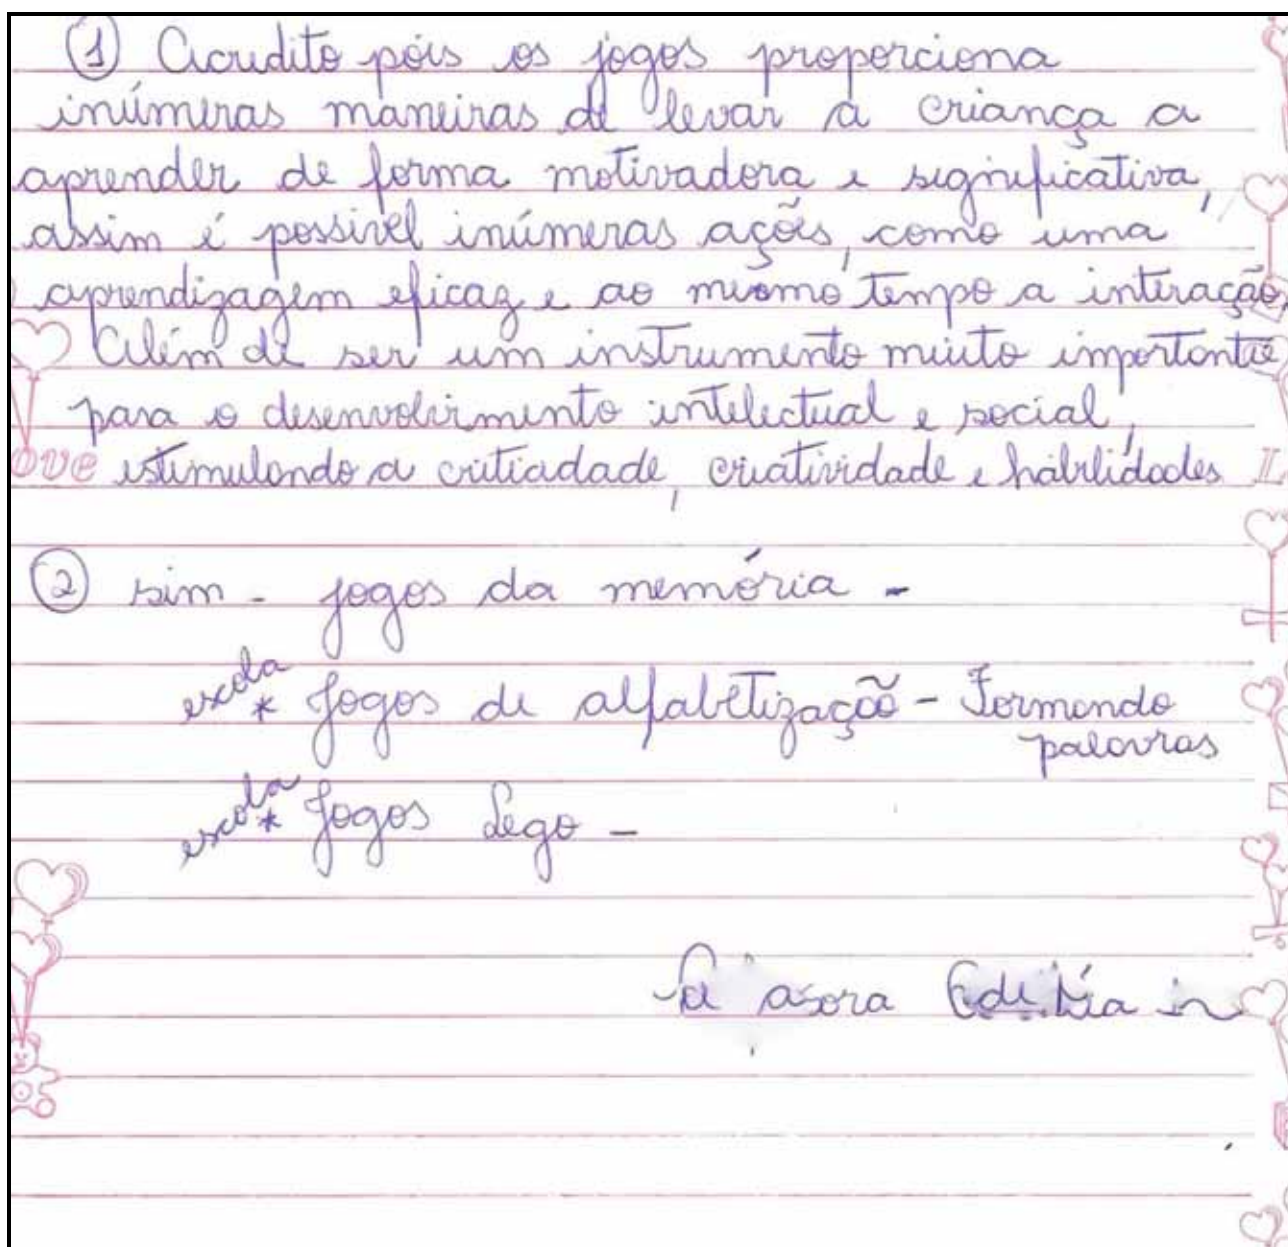 ① Acredito pois os jogos proporciona
inúmeras maneiras de levar a criança a
aprender de forma motivadora e significativa,
assim é possivel inúmeras ações, como uma
aprendizagem eficaz e ao mesmo tempo a interação,
Além de ser um instrumento muito importante
para o desenvolvimento intelectual e social,
ove estimulando a criticidade, criatividade e habilidades L
② sim - jogos da memória -
escola
* Jogos de alfabetização - Formando
palavras
escola
* Jogos Lego -